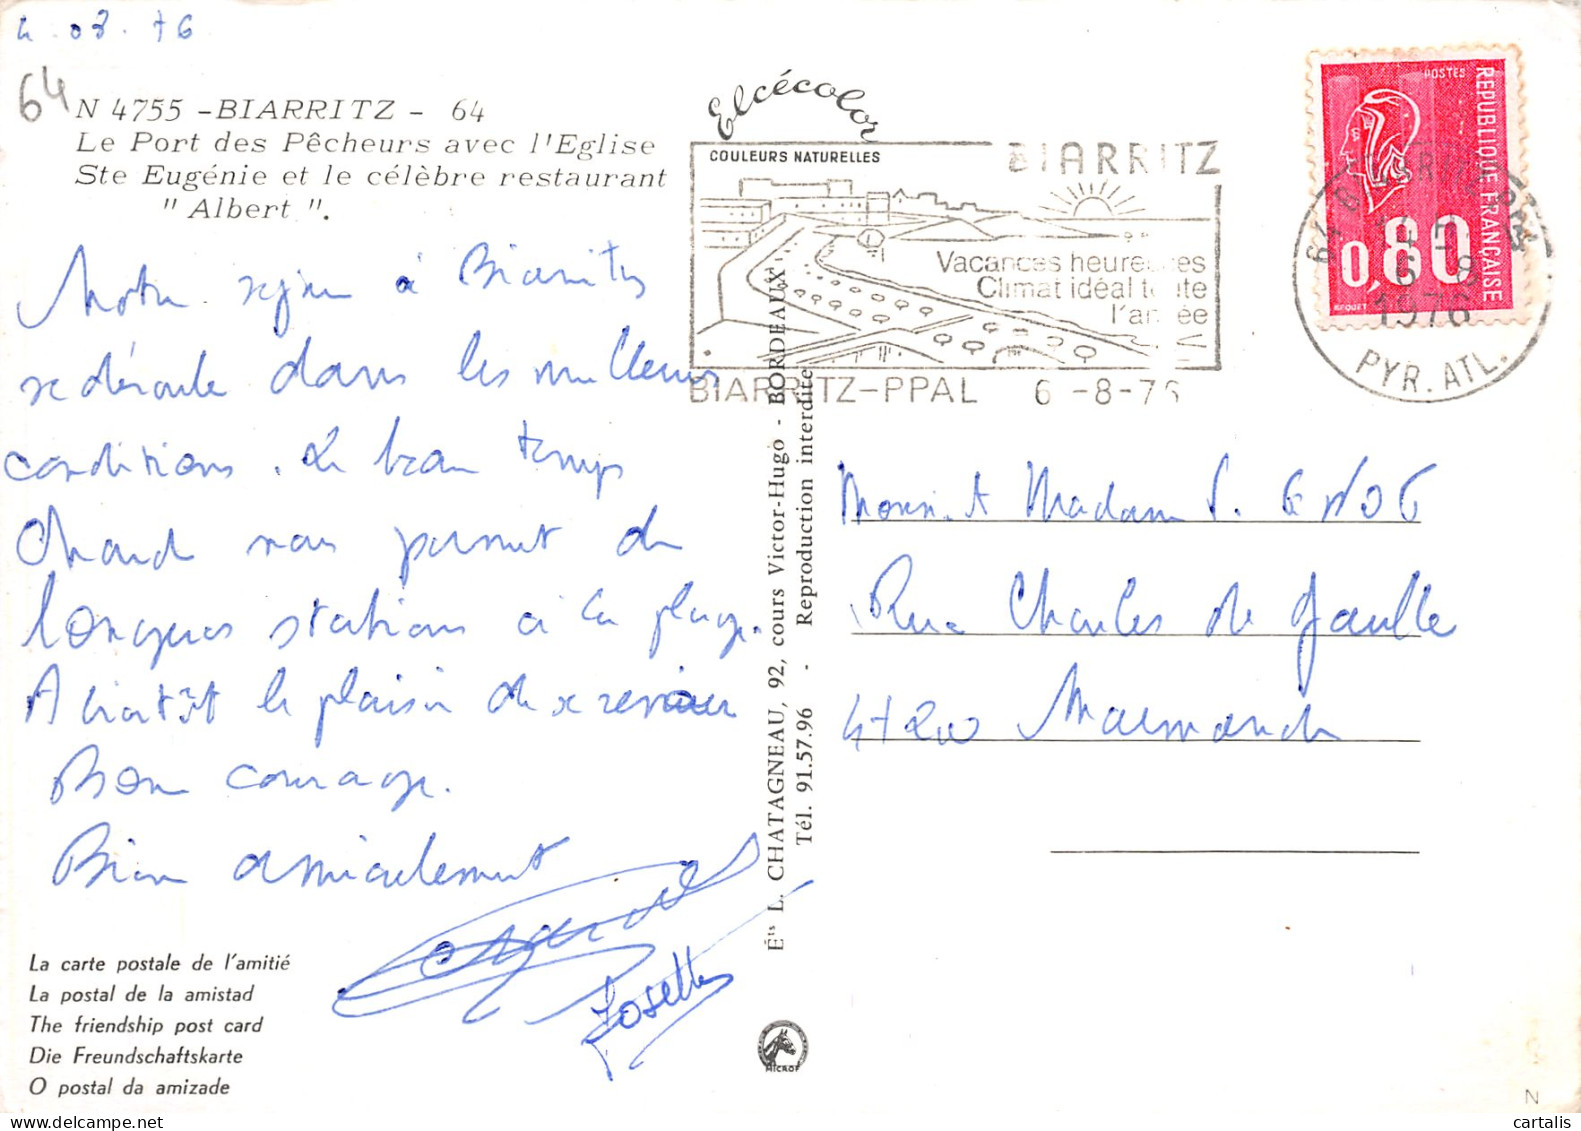 4.08.76
64
N 4755 -BIARRITZ - 64
Le Port des Pêcheurs avec l'Eglise
Ste Eugénie et le célèbre restaurant
" Albert ".
Elcécolor
COULEURS NATURELLES
BIARRITZ
Vacances heureuses
Climat idéal toute
l'année
BIARRITZ-PPAL 6 -8-76
POSTES
REPUBLIQUE FRANCAISE
0,80
BEQUET
64 BIARRITZ PPAL
6 -8
1976
PYR. ATL.
Notre séjour à Biarritz
se déroule dans les meilleures
conditions. Le beau temps
chaud nous permet de
longues stations à la plage.
A bientôt le plaisir de se revoir
Bon courage.
Bien amicalement
Josette
Monsr et Madame
Rue Charles de Gaulle
47200 Marmande
Éts L. CHATAGNEAU, 92, cours Victor-Hugo - BORDEAUX
Tél. 91.57.96 - Reproduction interdite
La carte postale de l'amitié
La postal de la amistad
The friendship post card
Die Freundschaftskarte
O postal da amizade
MICROF
N
cartalis